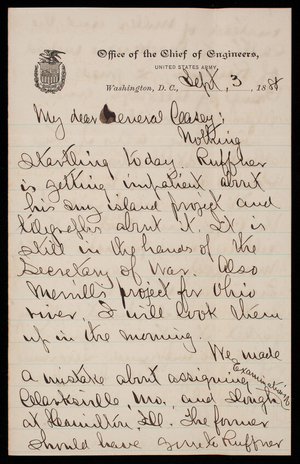 Office of the Chief of Engineers,
UNITED STATES ARMY,
Washington, D. C., Sept, 3, 1888
My dear General Casey;
Nothing
startling today. Ruffner
is getting impatient about
his island project and
telegraphs about it. It is
still in the hands of the
Secretary of War. Also
Merrills project for Ohio
river. I will look them
up in the morning.
We made
a mistake about assigning Examination of
Clarksville, Mo., and Slough
at Hamilton, Ill. The former
should have gone to Ruffner